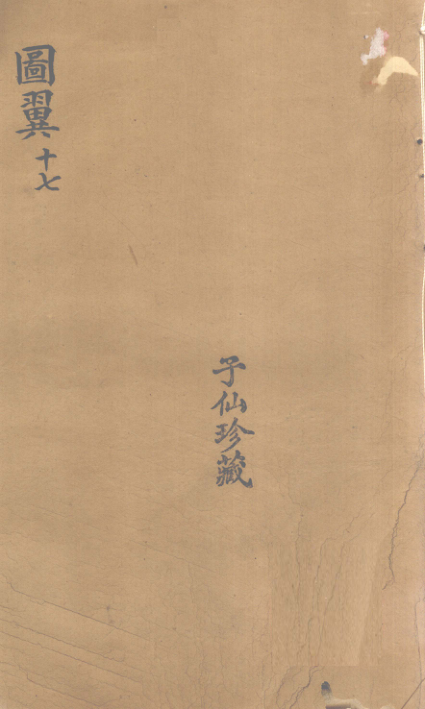 圖翼十七
子仙珍藏